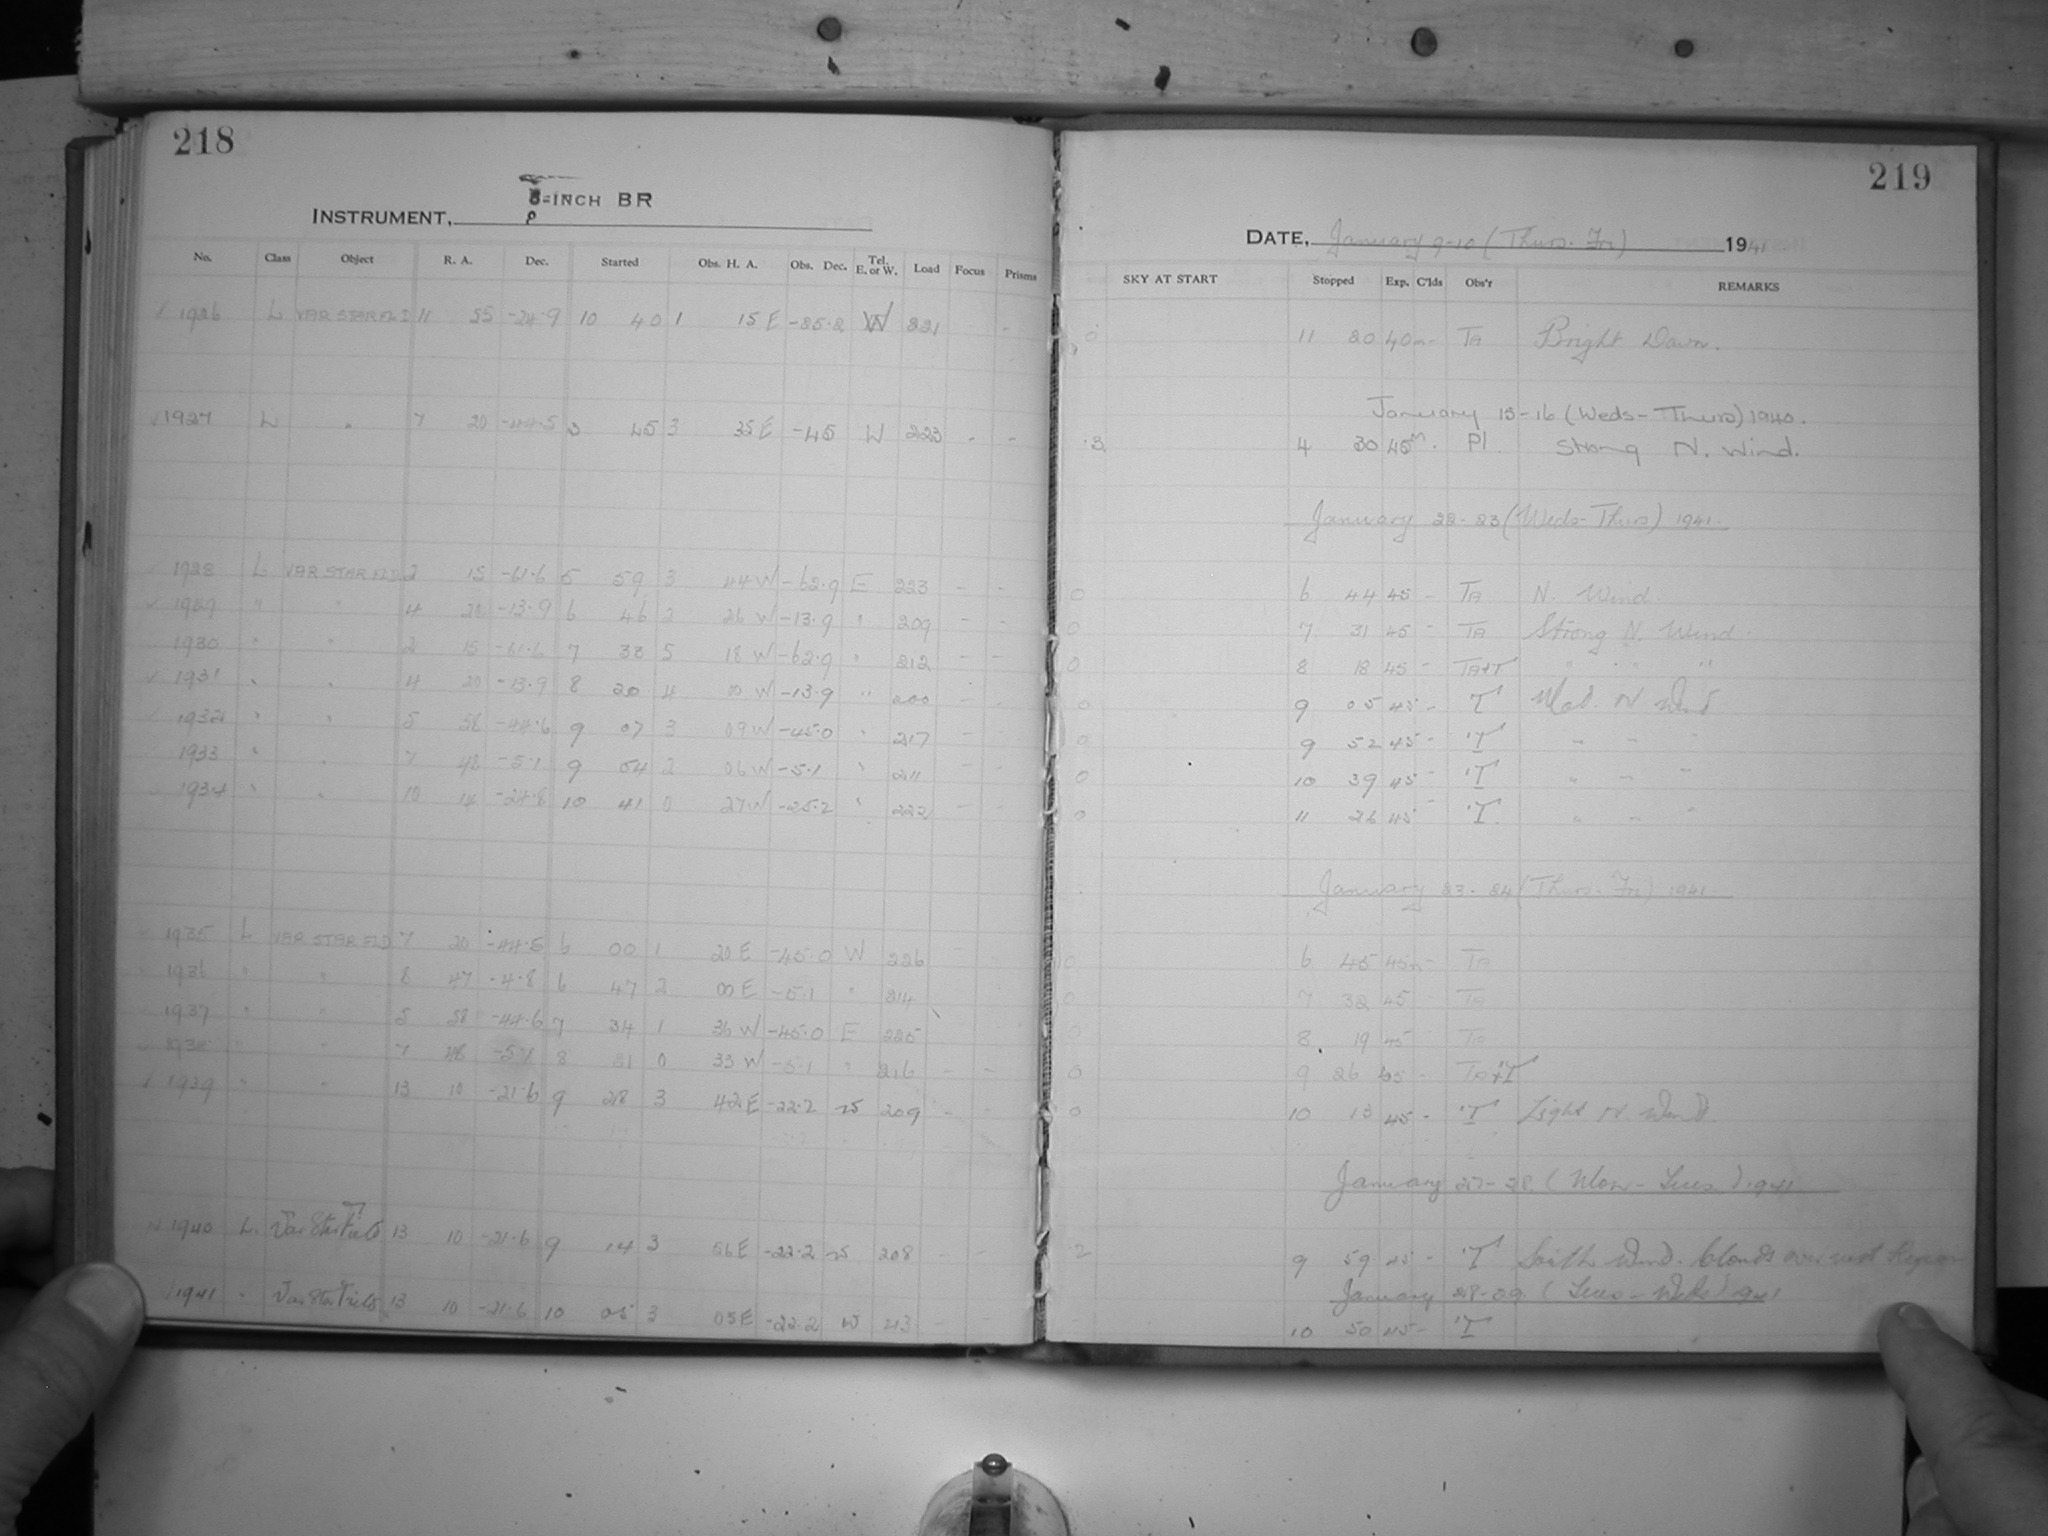 218
INSTRUMENT, 8-INCH BR
No. Class Object R. A. Dec. Started Obs. H. A. Obs. Dec. Tel. E. or W. Load Focus Prisms
1926 L VAR STAR FLD 11 55 -24.9 10 40 1 15 E -25.2 W 221 - -
1927 L " 7 20 -44.5 3 45 3 35 E -45 W 223 - -
1928 L VAR STAR FLD 2 15 -61.6 5 59 3 44 W -62.9 E 223 - -
1929 " " 4 20 -13.9 6 46 2 26 W -13.9 " 209 - -
1930 " " 2 15 -61.6 7 33 5 18 W -62.9 " 212 - -
1931 " " 4 20 -13.9 8 20 4 00 W -13.9 " 200 -
1932 " " 5 58 -44.6 9 07 3 09 W -45.0 " 217 - -
1933 " " 7 48 -5.1 9 54 2 06 W -5.1 " 211 - -
1934 " " 10 14 -24.8 10 41 0 27 W -25.2 " 222 - -
1935 L VAR STAR FLD 7 20 -44.5 6 00 1 20 E -45.0 W 226 -
1936 " " 8 47 -4.8 6 47 2 00 E -5.1 " 214
1937 " " 5 58 -44.6 7 34 1 36 W -45.0 E 225
1938 " " 7 48 -5.1 8 21 0 33 W -5.1 " 216 - -
1939 " " 13 10 -21.6 9 28 3 42 E -22.2 W 209 - -
1940 L. Var Star Field 13 10 -21.6 9 14 3 56 E -22.2 W 208 - -
1941 " Var Star Field 13 10 -21.6 10 05 3 05 E -22.2 W 213 - -
219
DATE, January 9-10 (Thurs. Fri) 1941
SKY AT START Stopped Exp. C'lds Obs'r REMARKS
0 11 20 40m - TA Bright Dawn.
January 15-16 (Weds-Thurs) 1940.
.3 4 30 45m. Pl. Strong N. Wind.
January 22-23 (Weds-Thurs) 1941.
0 6 44 45 - TA N. Wind.
0 7 31 45 - TA Strong N. Wind.
0 8 18 45 - TA+T " " "
0 9 05 45 - T Mod. N Wind
0 9 52 45 - T " " "
0 10 39 45 - T " " "
0 11 26 45 - T " " "
January 23-24 (Thurs-Fri) 1941.
0 6 45 45m - TA
0 7 32 45 - TA
0 8 19 45 - TA
0 9 26 45 - TA+T
0 10 13 45 - T Light N Wind.
January 27-28 (Mon-Tues.) 1941
.2 9 59 45 - T South Wind. Clouds over
January 28-29 (Tues-Weds) 1941
- 10 50 45 - T